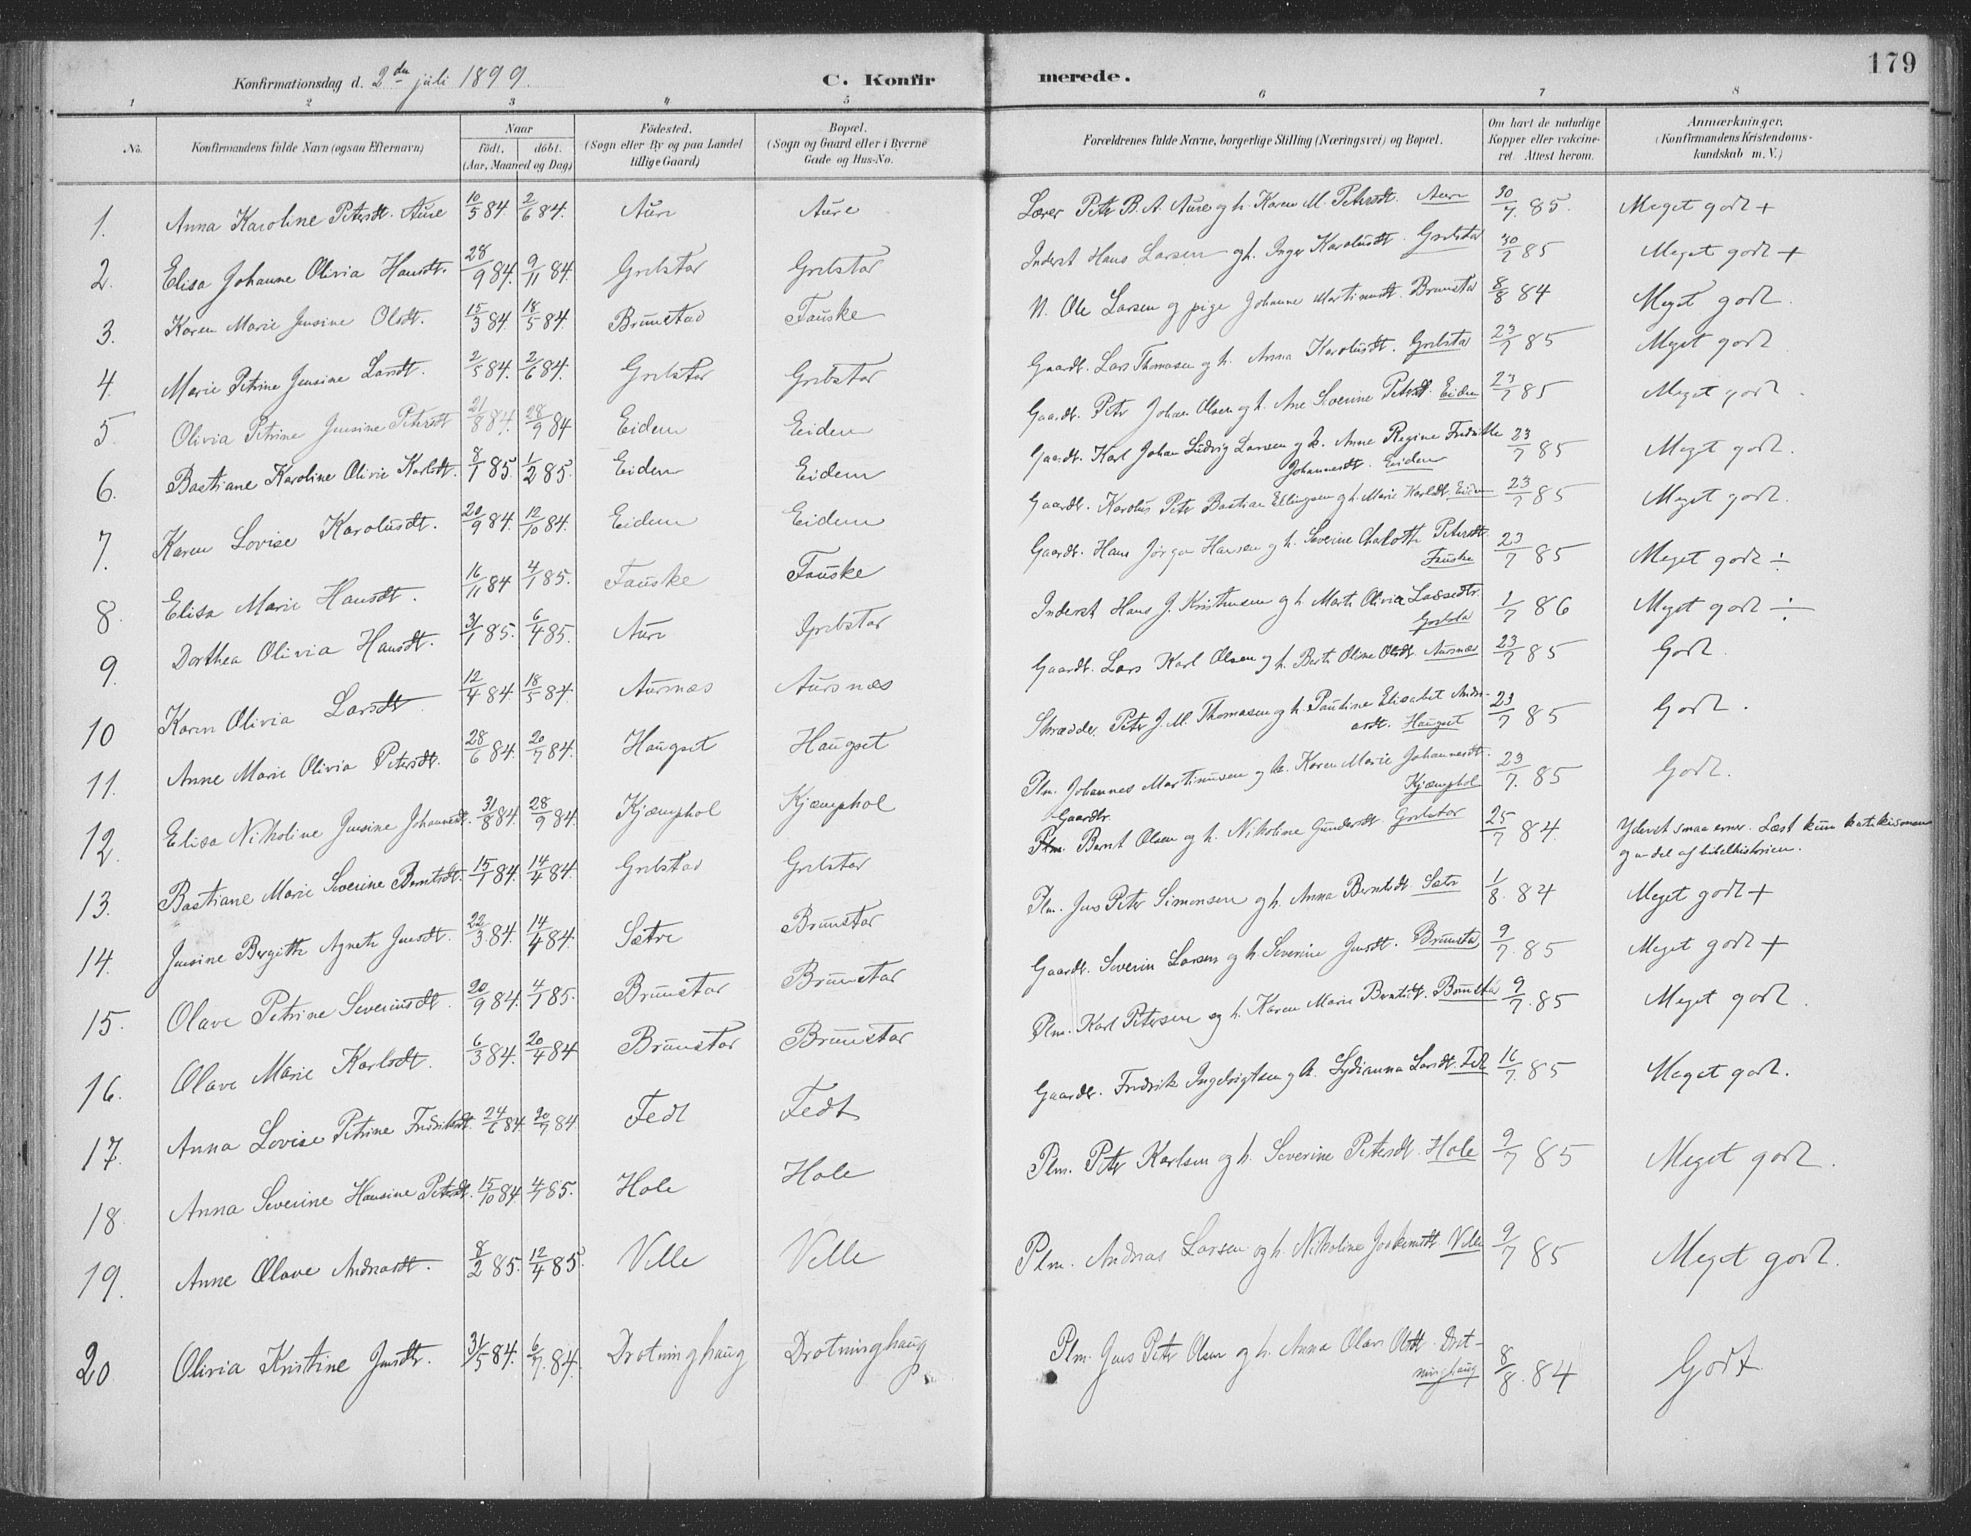 179
Konfirmationsdag d. 2den juli 1899. C. Konfirmerede.
1 2 3 4 5 6 7 8
No. Konfirmandens fulde Navn (ogsaa Efternavn) Naar Födt, döbt. (Aar, Maaned og Dag) Födested. (Sogn eller By og paa Landet tillige Gaard) Bopæl. (Sogn og Gaard eller i Byerne Gade og Hus-No. Forældrenes fulde Navne, borgerlige Stilling (Næringsvei) og Bopæl. Om havt de naturlige Kopper eller vakcineret. Attest herom. Anmærkninger. (Konfirmandens Kristendomskundskab m. V.)
1. Anna Karoline Petersdt. Aure 10/5 84 2/6 84. Aure Aure Lærer Peter B. A. Aure og h. Karen M. Petersdt. Aure 30/7 85. Meget godt +
2. Elisa Johanne Olivia Hansdt. 28/9 84. 9/11 84. Grebstad Grebstad Inderst Hans Larsen og h. Inger Karolusdt. Grebstad 30/7 85 Meget godt +
3. Karen Marie Jensine Olsdt. 15/3 84. 18/5 84. Brunstad Fauske N. Ole Larsen og pige Johanne Martinusdt. Brunstad 8/8 84 Meget godt.
4. Marie Petrine Jensine Larsdt. 2/5 84. 2/6 84. Grebstad Grebstad Gaardt. Lars Thomasen og h. Anna Karolusdt. Grebstad 23/7 85 Meget godt
5. Olivia Petrine Jensine Petersdt 21/8 84. 28/9 84 Eidem Eidem Gaardt. Peter Johan Olsen og h. Ane Severine Petersdt. Eidem 23/7 85 Meget godt.
6. Bastiane Karoline Olivie Karlsdt. 8/1 85. 1/2 85. Eidem Eidem Gaardt. Karl Johan Ludvig Larsen og h. Anne Regine Fredrikke Johannesdt. Eidem 23/7 85 Meget godt
7. Karen Lovise Karolusdt. 20/9 84. 12/10 84. Eidem Eidem Gaardt. Karolus Peter Bastian Ellingsen og h. Marie Karlsdt. Eidem 23/7 85 Meget godt.
8. Elisa Marie Hansdt. 16/11 84 4/1 85. Fauske Fauske Gaardt. Hans Jørgen Hansen og h. Severine Chalotte Petersdt. Fauske 23/7 85 Meget godt ÷
9. Dorthea Olivia Hansdt. 31/1 85. 6/4 85. Aure Grebstad Inderst Hans J. Kristensen og h. Marte Olivia Lassedtr. Grebstad 1/7 86 Meget godt ÷
10 Karen Olivia Larsdt. 12/4 84. 18/5 84. Aursnes Aursnæs Gaardt. Lars Karl Olsen og h. Berte Oline Olsdt. Aursnæs 23/7 85 Godt.
11. Anne Marie Olivia Petersdt. 28/6 84. 20/7 84. Haugset Haugset Skrædder Peter J. M. Thomasen og h. Pauline Elisabet Andreasdt. Haugset 23/7 85 Godt.
12. Elisa Nikoline Jensine Johannesdt. 31/8 84. 28/9 84. Kjæmphol Kjæmphol Plm. Johannes Martinusen og h. Karen Marie Johannesdt. Kjæmphol 23/7. 85 Godt.
13. Bastiane Marie Severine Berntsdt. 15/1 84. 14/4 84. Grebstad Grebstad Gaardtr. Plm. Bernt Olsen og h. Nikoline Gundersdt. Grebstad 25/7 84. Yderst smaa evner. Læst kun katekismen og en del af bibelhistorien.
14. Jensine Bergitte Agnete Jensdt. 22/3 84. 14/4 84. Sætre Brunstad Plm. Jens Peter Simonsen og h. Anna Berntsdt. Sætr 1/8. 84 Meget godt +
15. Olave Petrine Severinsdt. 20/9 84. 4/1 85. Brunstad Brunstad Gaardt. Severin Larsen og h. Severine Jensdt. Brunstad 9/7. 85 Meget godt +
16. Olave Marie Karlsdt. 6/3 84. 20/4 84 Brunstad Brunstad Plm. Karl Petersen og h. Karen Marie Berntsdt. Brunstad 9/7. 85 Meget godt.
17. Anna Lovise Petrine Fredriksdt. 24/6 84 20/7 84. Fedt Fedt Gaardt. Fredrik Ingebrigtsen og h. Lydianna Larsdt. Fet 16/7. 85 Meget godt.
18. Anna Severine Hansine Petersdt. 15/10 84. 4/1 85. Hole Hole Plm. Peter Karlsen og h. Severine Petersdt. Hole 9/7 85 Meget godt.
19. Anne Olave Andreasdt. 8/2 85. 12/4 85. Velle Velle Plm. Andreas Larsen og h. Nikoline Joakimsdt Velle 9/7 85 Meget godt.
20 Olivia Kristine Jensdt. 31/5 84. 6/7. 84. Drotninghaug Drotninghaug Plm. Jens Peter Olsen og h. Anna Olave Olsdt. Drotninghaug 8/8. 84 Godt